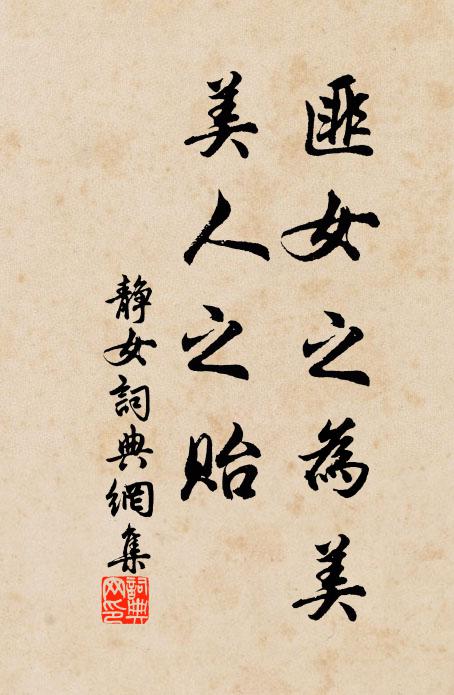 匪女之為美
美人之貽
靜女詞典網集
詞典網印